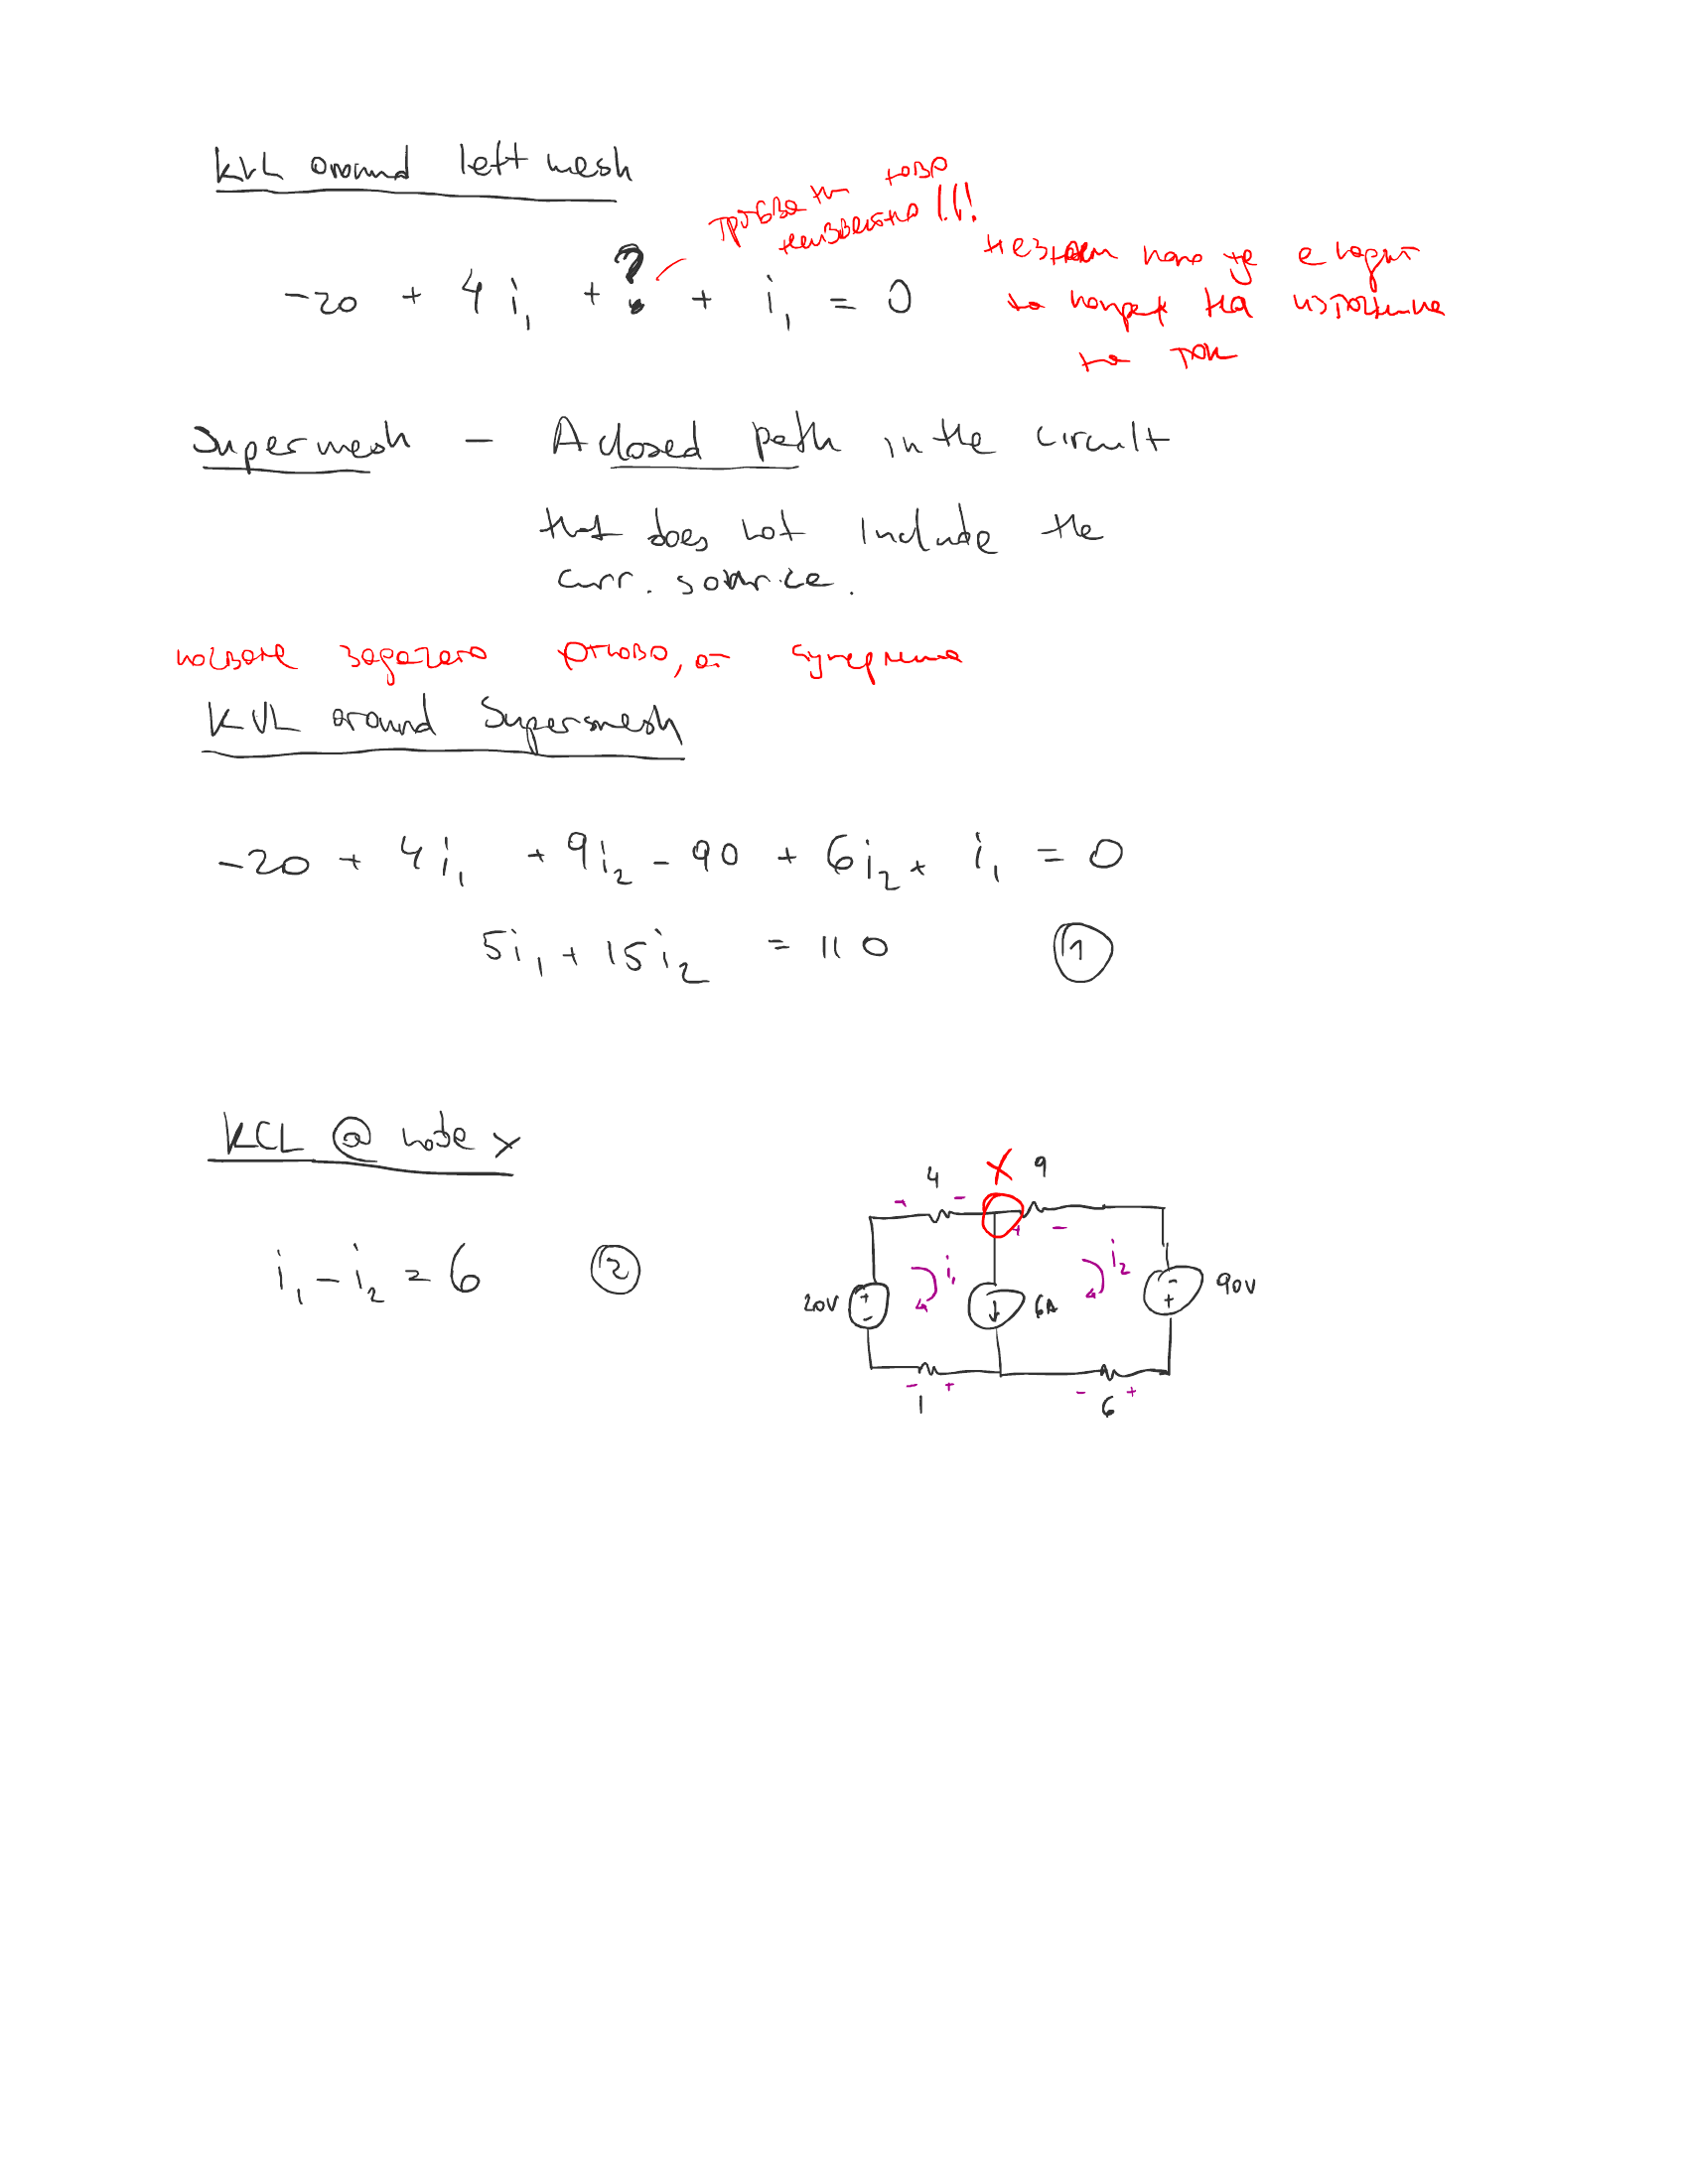 KVL around left mesh
трябва ти това
неизвестно !!!
-20 + 4i₁ + ? + i₁ = 0
незнам како ще е
на източника
на ток
Supermesh - A closed path in the circuit
that does not include the
curr. sourice.
задачата отново, от супермеша
KVL around Supersmesh
-20 + 4i₁ + 9i₂ - 90 + 6i₂ + i₁ = 0
5i₁ + 15i₂ = 110 ①
KCL @ node x
i₁ - i₂ = 6 ②
4 X 9
+ - + -
i₁ i₂
20V + - 6A - + 90V
- + - +
1 6